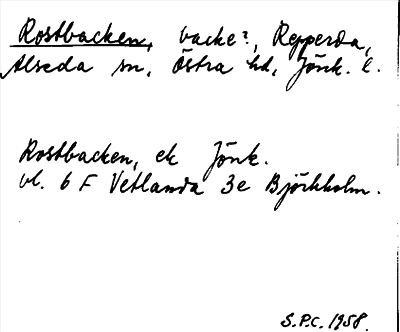 Rostbacken, backe?, Repperda,
Alseda sn, Östra hd, Jönk. l.
Rostbacken, ek Jönk.
bl. 6 F Vetlanda 3e Björkholm.
S.P.C. 1958.